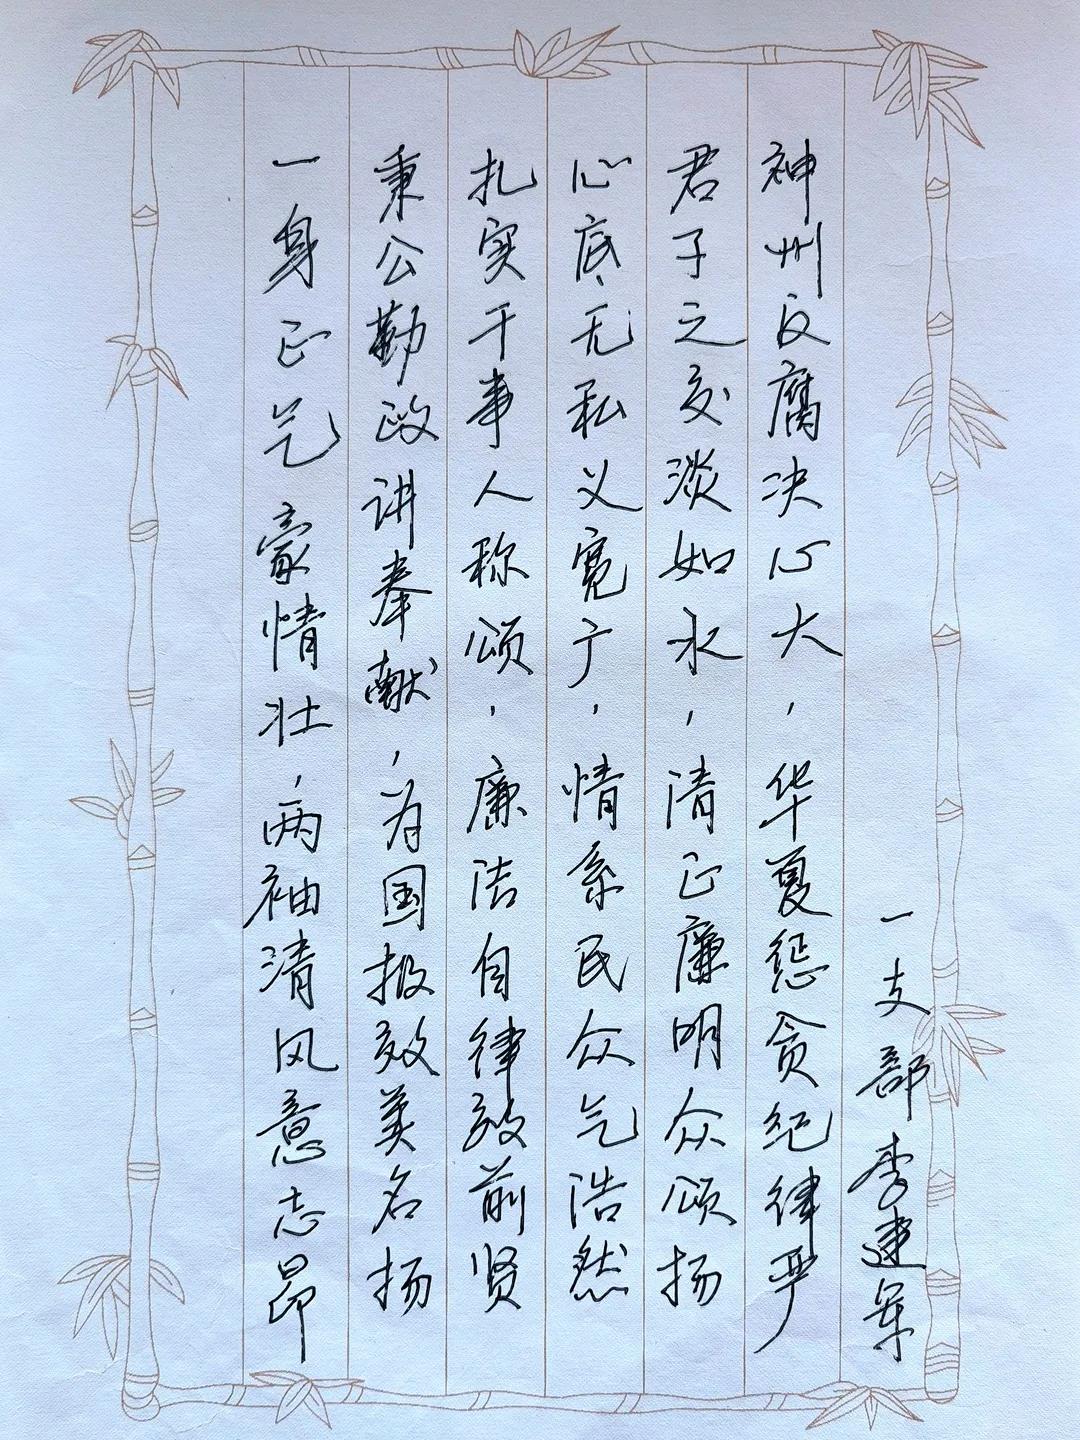 一支部李建军
神州反腐决心大，华夏惩贪纪律严
君子之交淡如水，清正廉明众颂扬
心底无私义宽广，情系民众气浩然
扎实干事人称颂，廉洁自律效前贤
秉公勤政讲奉献，为国报效美名扬
一身正气豪情壮，两袖清风意志昂